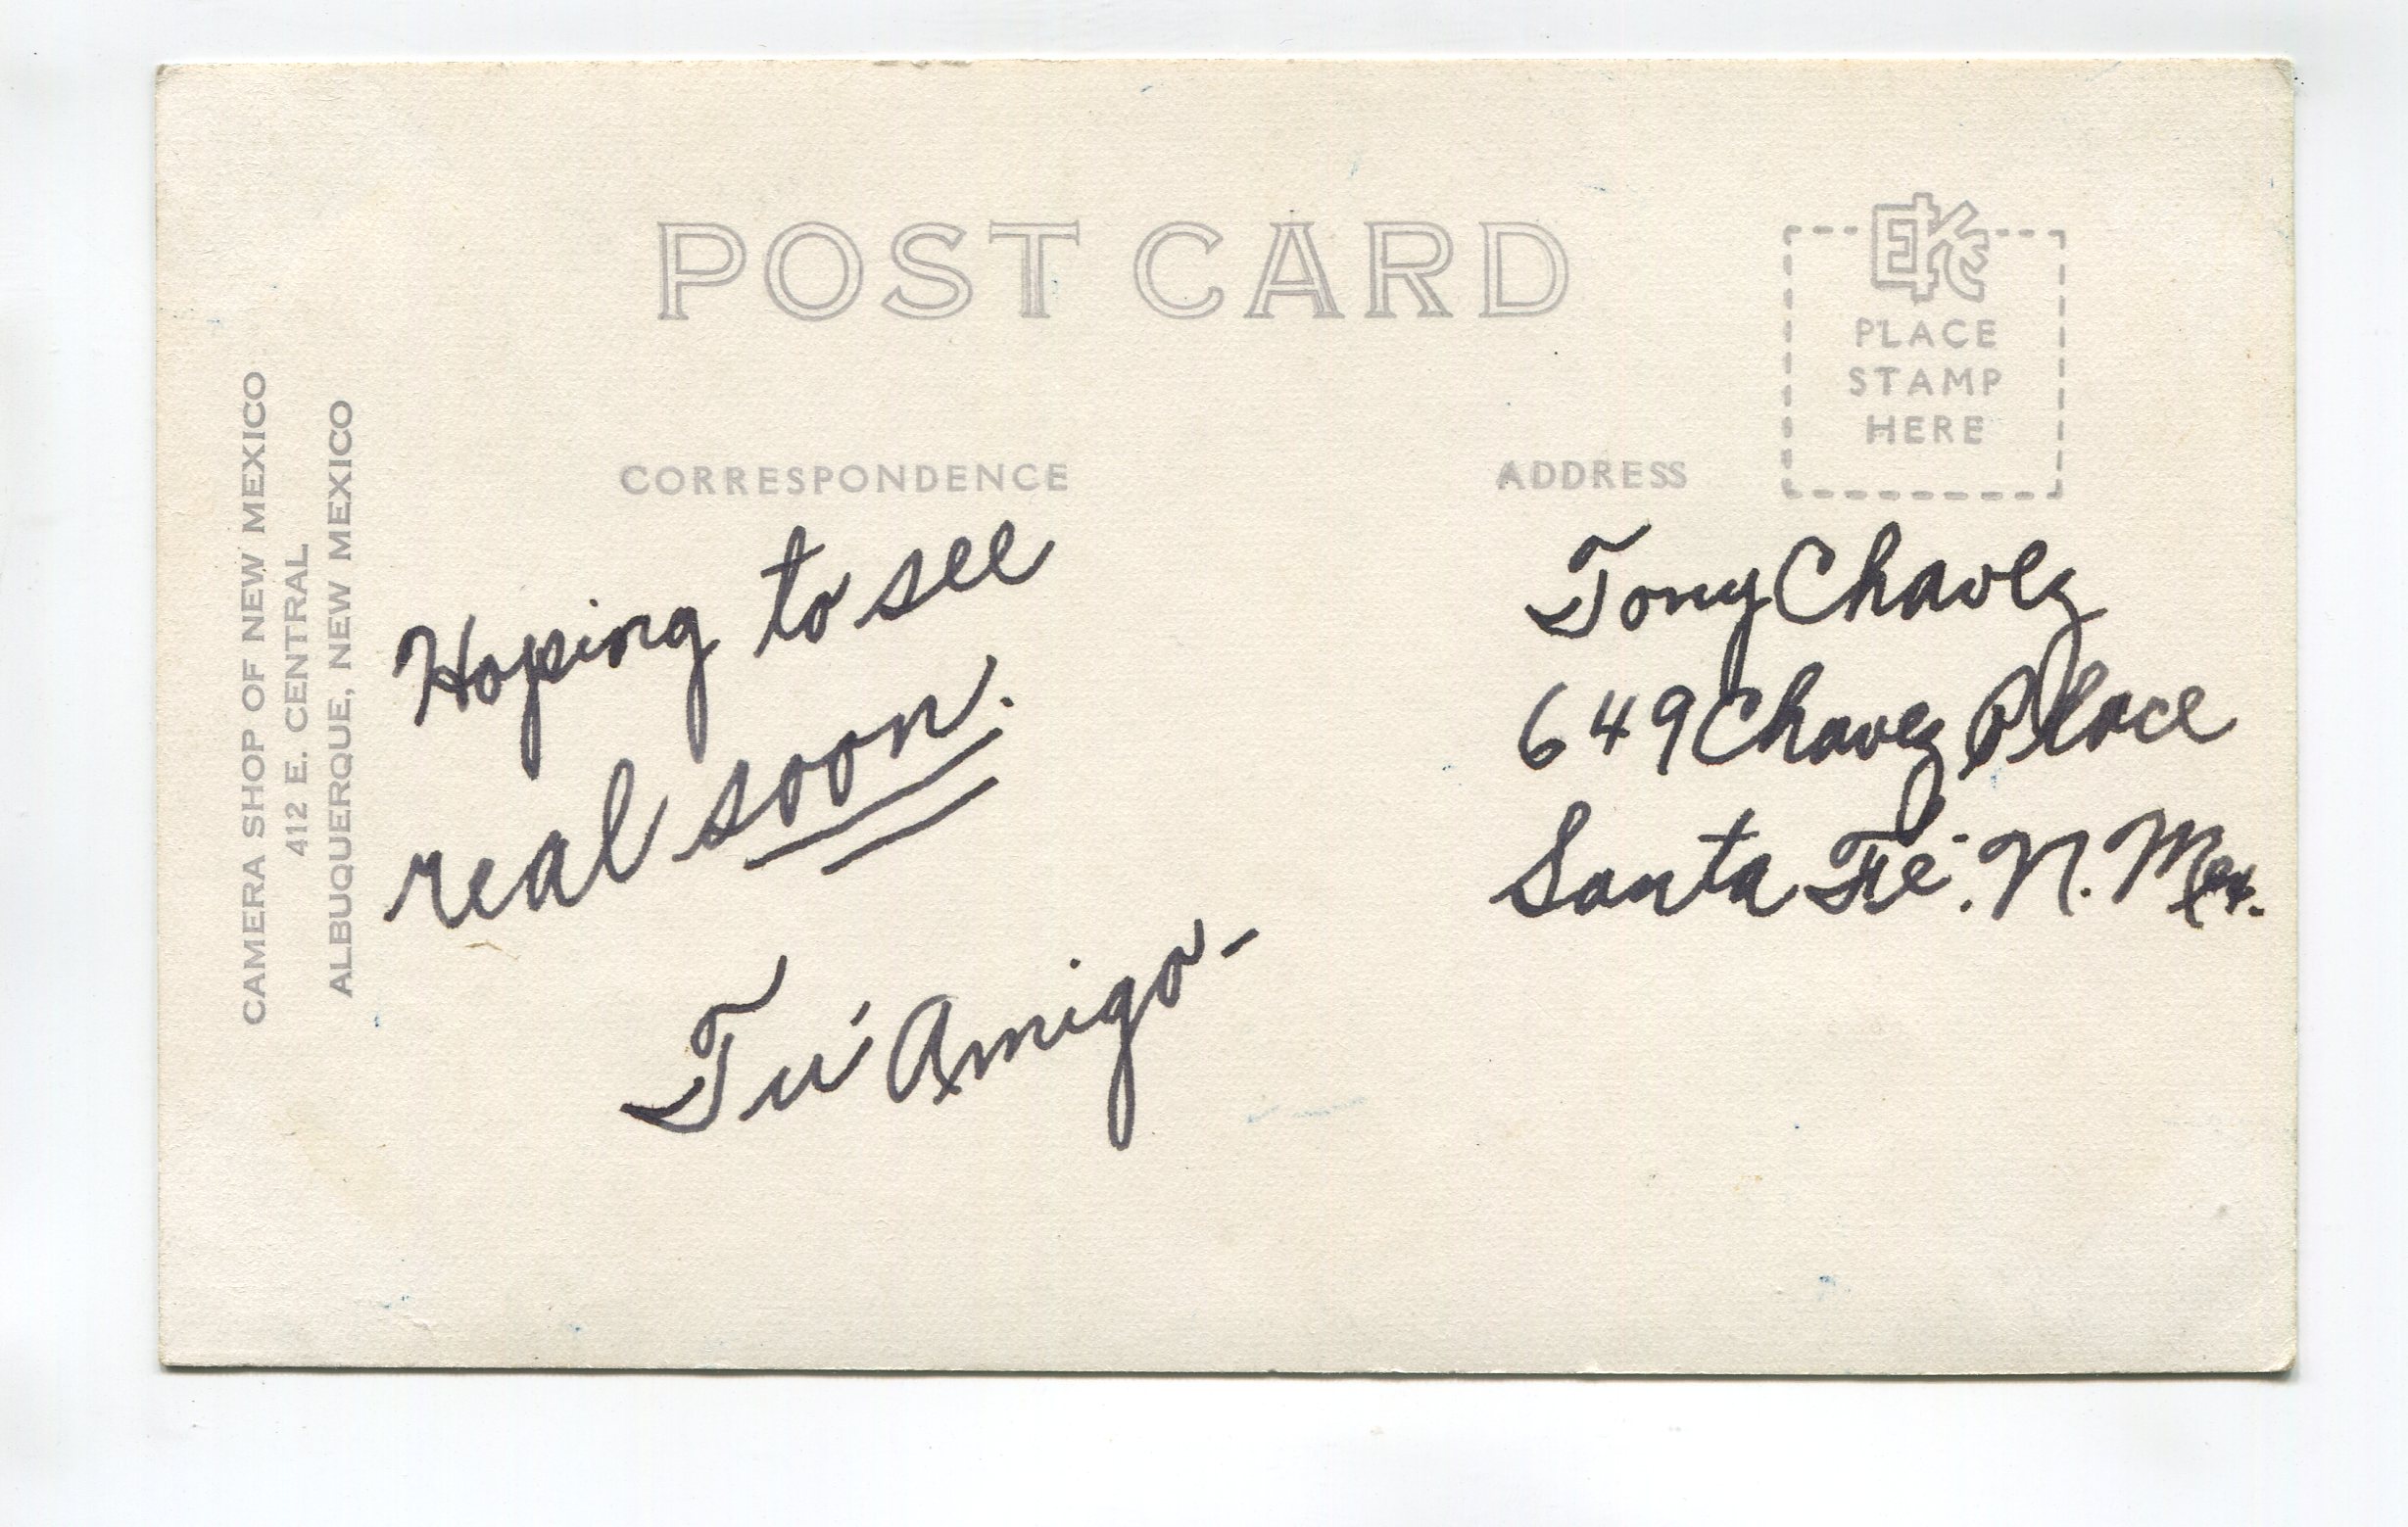 POST CARD
EKC
PLACE
STAMP
HERE
CORRESPONDENCE
ADDRESS
CAMERA SHOP OF NEW MEXICO
412 E. CENTRAL
ALBUQUERQUE, NEW MEXICO
Hoping to see
real soon.
Tú Amigo-
Tony Chavez
649 Chavez Place
Santa Fé. N. Mex.